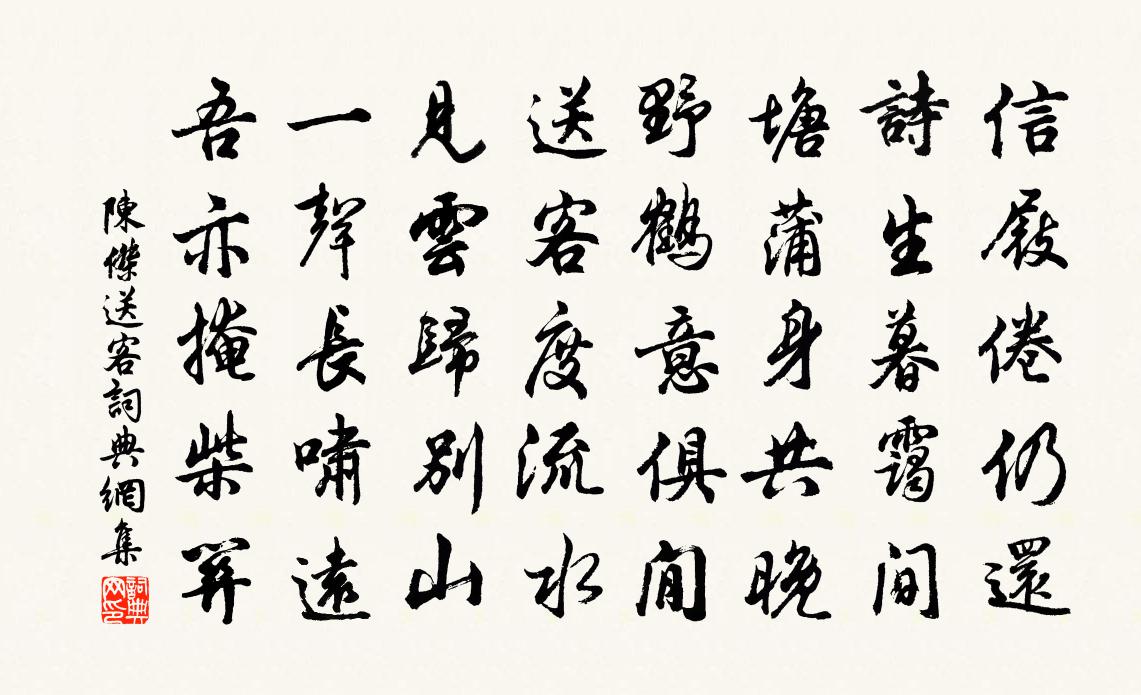 信屐倦仍還
詩生暮靄間
塘蒲身共晚
野鶴意俱閒
送客度流水
見雲歸別山
一聲長嘯遠
吾亦掩柴關
陳傑送客詞典網集
詞典網印